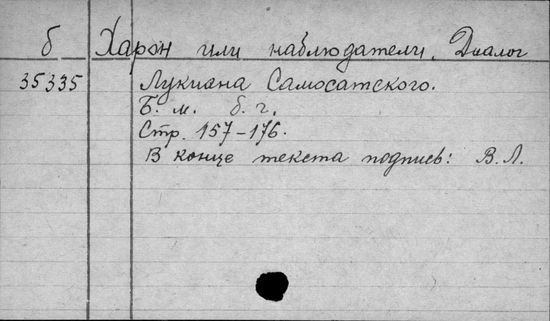 б Харон или наблюдатели. Диалог
35335 Лукиана Самосатского.
Б. м. б. г.
Стр. 157-176.
В конце текста подпись: В.Л.